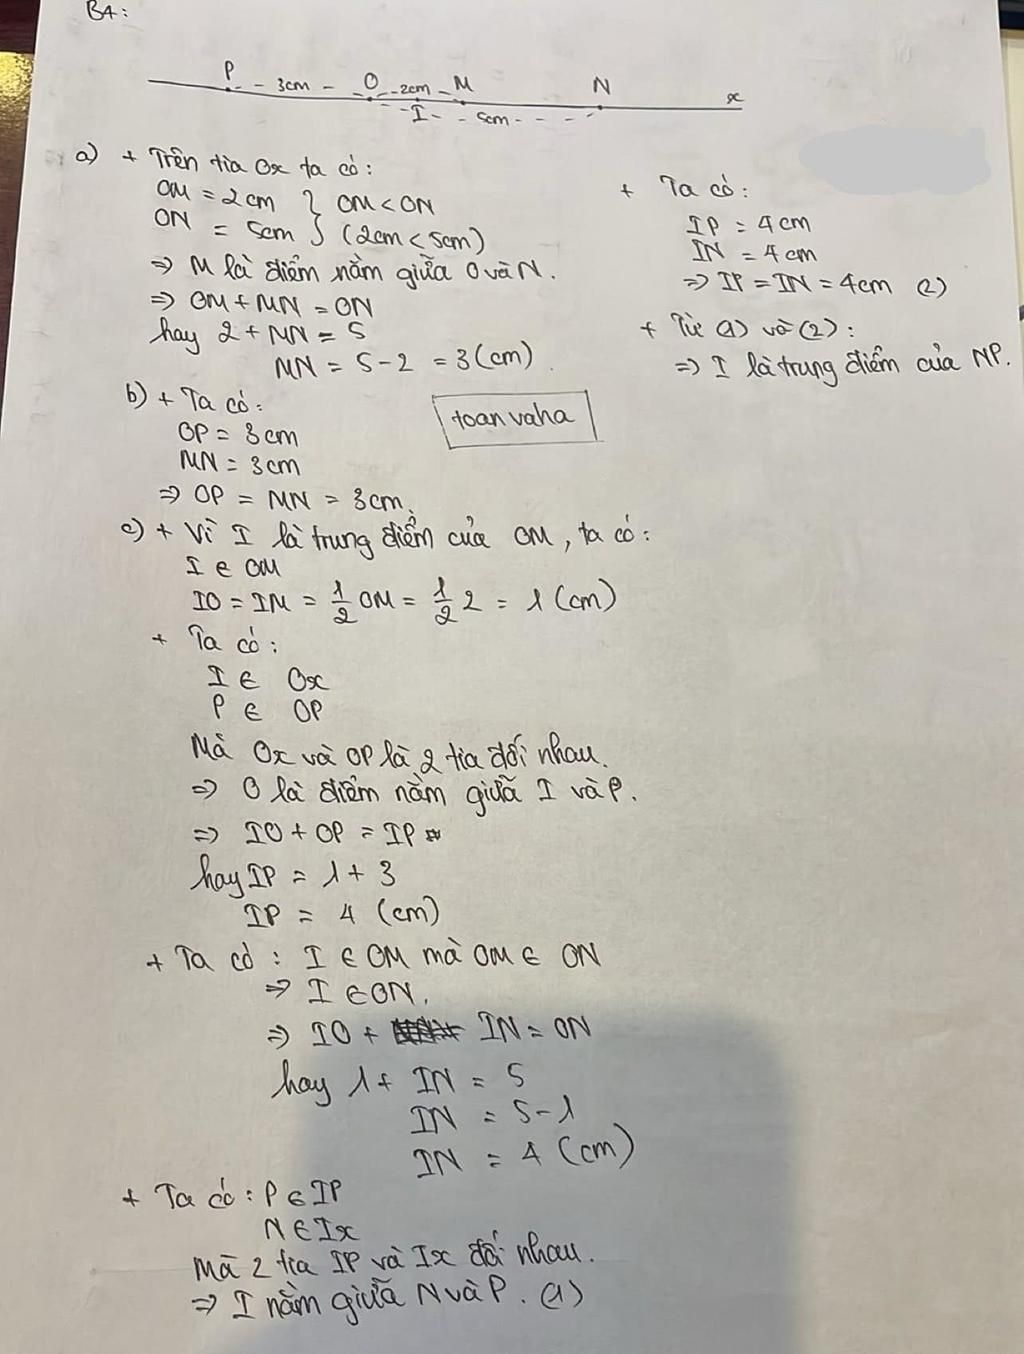 B4:
P - 3cm - O - 2cm - M N x
I - 5cm - - -
a) + Trên tia Ox ta có:
OM = 2cm } OM < ON
ON = 5cm } (2cm < 5cm)
=> M là điểm nằm giữa O và N.
=> OM + MN = ON
hay 2 + MN = 5
MN = 5 - 2 = 3 (cm).
b) + Ta có:
OP = 3cm
MN = 3cm
=> OP = MN = 3cm.
toanvaha
c) + Vì I là trung điểm của OM, ta có:
I ∈ OM
IO = IM = 1/2 OM = 1/2 2 = 1 (cm)
+ Ta có:
I ∈ Ox
P ∈ OP
Mà Ox và OP là 2 tia đối nhau.
=> O là điểm nằm giữa I và P.
=> IO + OP = IP
hay IP = 1 + 3
IP = 4 (cm)
+ Ta có: I ∈ OM mà OM ∈ ON
=> I ∈ ON.
=> IO + IN = ON
hay 1 + IN = 5
IN = 5 - 1
IN = 4 (cm)
+ Ta có: P ∈ IP
N ∈ Ix
Mà 2 tia IP và Ix đối nhau.
=> I nằm giữa N và P. (1)
+ Ta có:
IP = 4cm
IN = 4cm
=> IP = IN = 4cm (2)
+ Từ (1) và (2):
=> I là trung điểm của NP.